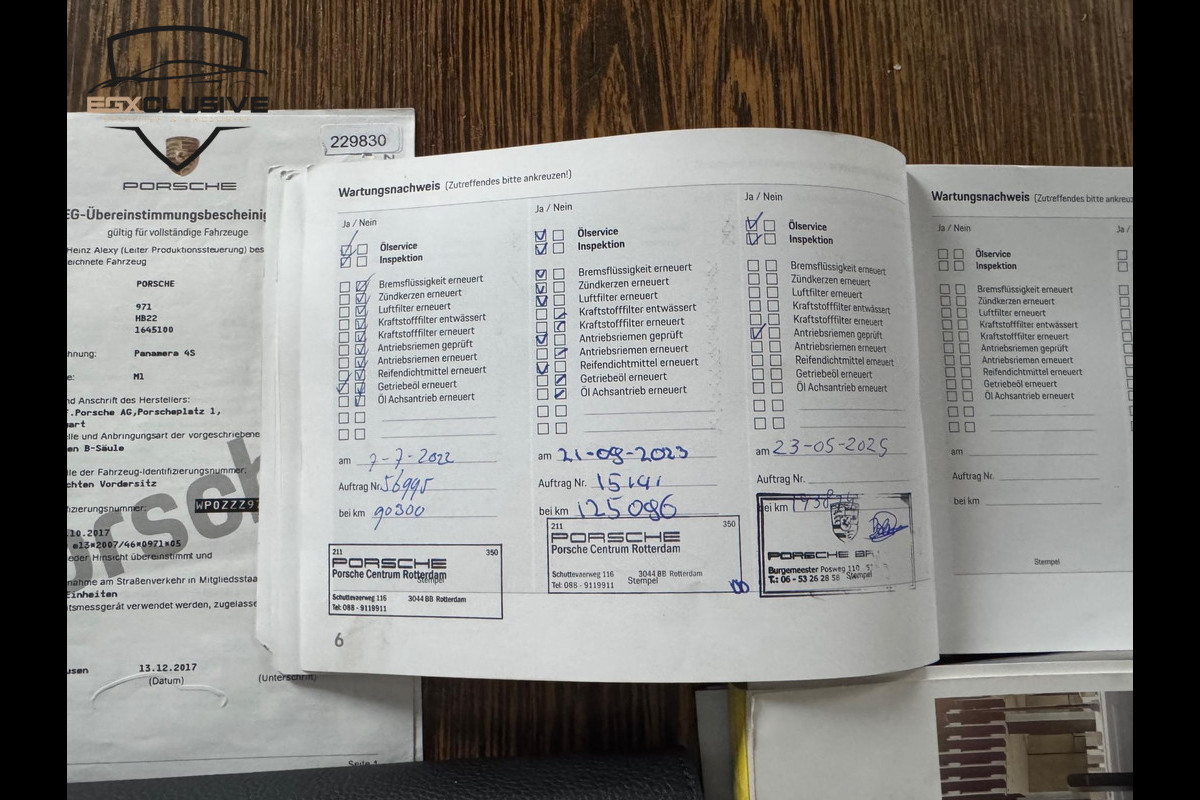 EGXCLUSIVE
229830
PORSCHE
EG-Übereinstimmungsbescheinig
gültig für vollständige Fahrzeuge
Heinz Alexy (Leiter Produktionssteuerung) bes
eichnete Fahrzeug
PORSCHE
971
HB22
1645100
hnung: Panamera 4S
e: M1
nd Anschrift des Herstellers:
F.Porsche AG,Porscheplatz 1,
art
lle und Anbringungsart der vorgeschriebene
en B-Säule
lle der Fahrzeug-Identifizierungsnummer:
chten Vordersitz
fizierungsnummer: WP0ZZZ97
10.2017
e13*2007/46*0971*05
eder Hinsicht übereinstimmt und
nahme am Straßenverkehr in Mitgliedsstaa
Einheiten
tsmessgerät verwendet werden, zugelasse
usen 13.12.2017
(Datum) (Unterschrift)
Seite 1
Wartungsnachweis (Zutreffendes bitte ankreuzen!)
Ja / Nein
Ölservice
Inspektion
Bremsflüssigkeit erneuert
Zündkerzen erneuert
Luftfilter erneuert
Kraftstofffilter entwässert
Kraftstofffilter erneuert
Antriebsriemen geprüft
Antriebsriemen erneuert
Reifendichtmittel erneuert
Getriebeöl erneuert
Öl Achsantrieb erneuert
am 7-7-2022
Auftrag Nr. 56995
bei km 90300
211 350
PORSCHE
Porsche Centrum Rotterdam
Stempel
Schuttevaerweg 116 3044 BB Rotterdam
Tel: 088 - 9119911
6
Ja / Nein
Ölservice
Inspektion
Bremsflüssigkeit erneuert
Zündkerzen erneuert
Luftfilter erneuert
Kraftstofffilter entwässert
Kraftstofffilter erneuert
Antriebsriemen geprüft
Antriebsriemen erneuert
Reifendichtmittel erneuert
Getriebeöl erneuert
Öl Achsantrieb erneuert
am 21-08-2023
Auftrag Nr. 15141
bei km 125086
211 350
PORSCHE
Porsche Centrum Rotterdam
Schuttevaerweg 116 3044 BB Rotterdam
Tel: 088 - 9119911 Stempel
Ja / Nein
Ölservice
Inspektion
Bremsflüssigkeit erneuert
Zündkerzen erneuert
Luftfilter erneuert
Kraftstofffilter entwässert
Kraftstofffilter erneuert
Antriebsriemen geprüft
Antriebsriemen erneuert
Reifendichtmittel erneuert
Getriebeöl erneuert
Öl Achsantrieb erneuert
am 23-05-2025
Auftrag Nr.
bei km
PORSCHE
Burgemeester Posweg 110
T.: 06 - 53 26 28 58 Stempel
Wartungsnachweis (Zutreffendes bitte ankreuz
Ja / Nein
Ölservice
Inspektion
Bremsflüssigkeit erneuert
Zündkerzen erneuert
Luftfilter erneuert
Kraftstofffilter entwässert
Kraftstofffilter erneuert
Antriebsriemen geprüft
Antriebsriemen erneuert
Reifendichtmittel erneuert
Getriebeöl erneuert
Öl Achsantrieb erneuert
am
Auftrag Nr.
bei km
Stempel
Ja /